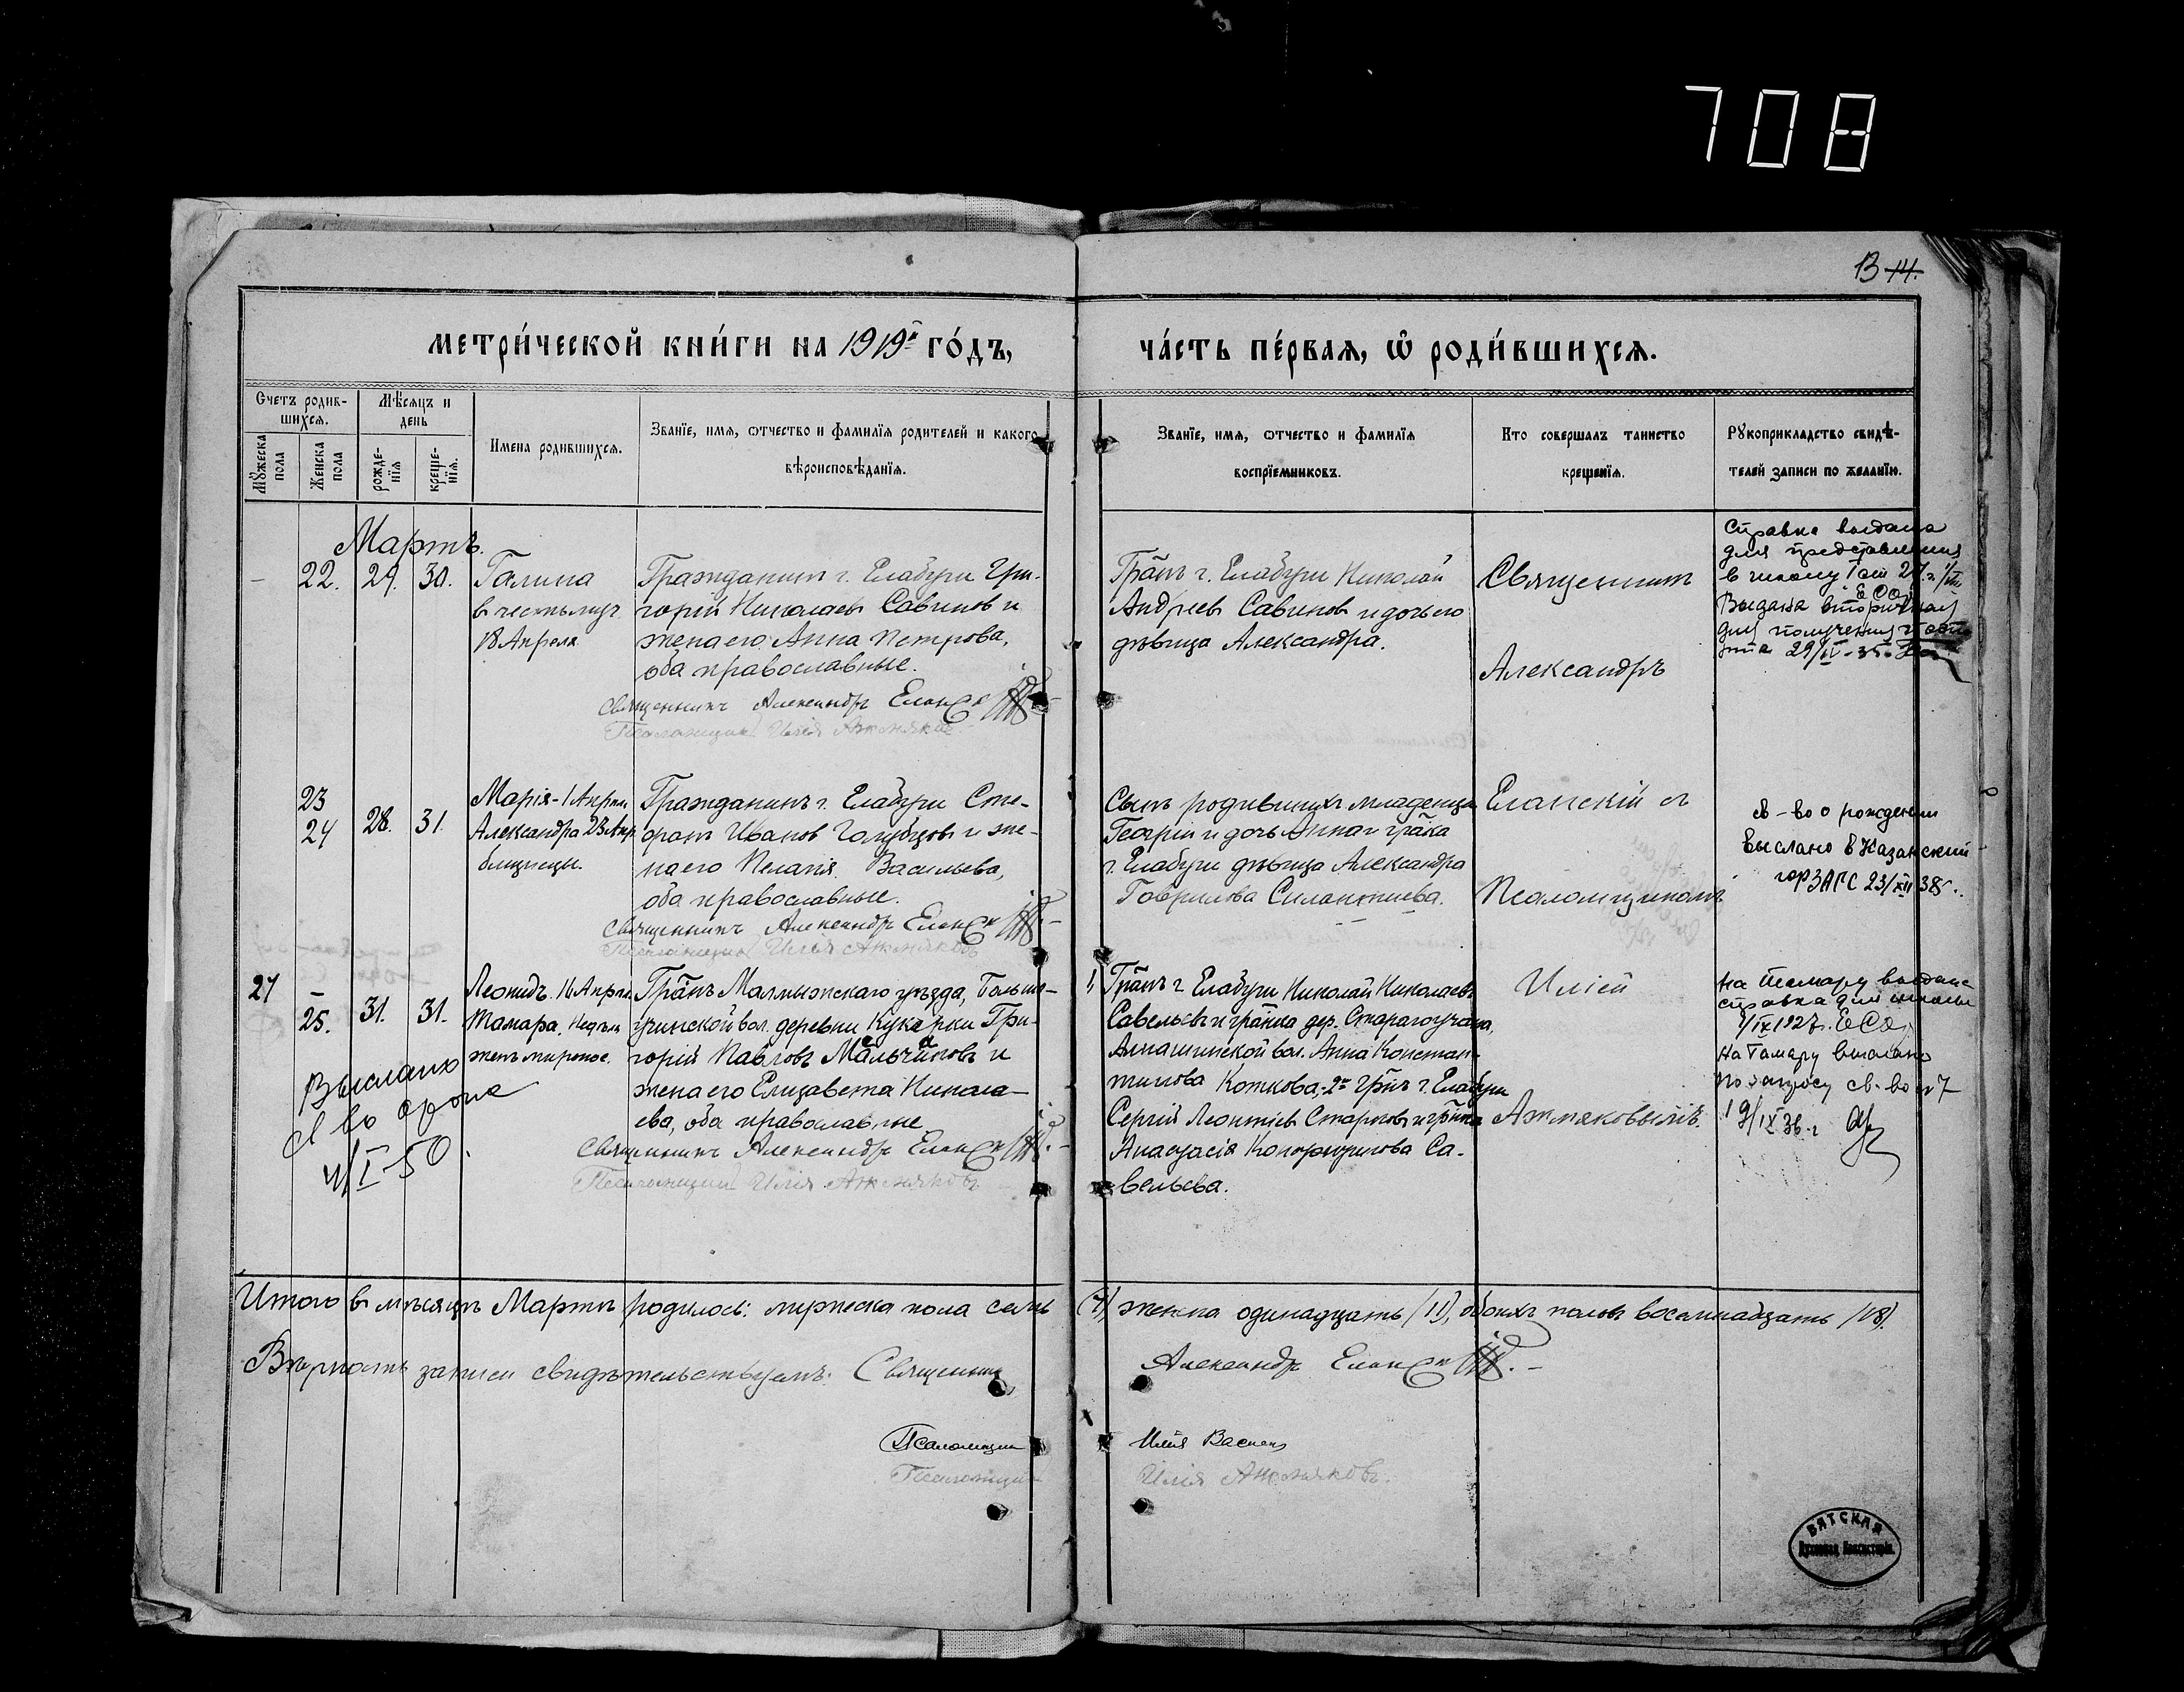 708
13 14.
метри́ческой кни́ги на 1919й го́дъ,
ча́сть пе́рвая, ѡ роди́вшихся.
Счетъ родив-
шихся.
Мѣсяцъ и
день
Мꙋжеска
пола
Женска
пола
рожде-
нїя
креще-
нїя.
Имена родившихся.
Званїе, имя, ѿтчество и фамилїя родителей и какого
вѣроисповѣданїя.
Званїе, имя, ѿтчество и фамилїя
воспрїемниковъ.
Кто совершалъ таинство
крещенїя.
Рꙋкоприкладство свидѣ-
телей записи по желанїю.
Мартъ.
22. 29. 30. Галина
в честь муч.
18 Апреля
Гражданинъ г. Елабуги Гри-
горій Николаевъ Савиновъ и
жена его Анна Петрова,
оба православные.
Священникъ Александръ Еланск
Псаломщикъ Илія Ажмяковъ
Гр̃анъ г. Елабуги Николай
Андреевъ Савиновъ и дочь его
дѣвица Александра.
Священникъ
Александръ
Справка выдана
для представления
в школу
Выдана вторичная
для получения
29/IV-35
23
24
28. 31.
Марія - 1 Апрѣл
Александра 23 Апр
близнецы.
Гражданинъ г. Елабуги Сте-
фанъ Ивановъ Голубцовъ и же-
на его Пелагія Васильева,
оба православные.
Священникъ Александръ Еланск
Псаломщикъ Илія Ажмяковъ
Сынъ родившихъ младенца
Георгій и дочь Анна и гр̃нка
г. Елабуги дѣвица Александра
Гаврилова Силантьева.
Еланскій съ
Псаломщикомъ
св-во о рождении
выслано в Казанский
горЗАГС 23/XII 38г.
27 –
25. 31. 31.
Леонидъ. 16 Апрѣл.
Тамара. Недѣля
женъ миронос.
Гр̃анъ Малмыжскаго уѣзда, Больше-
учинской вол. деревни Кукарки Гри-
горій Павловъ Мальчиковъ и
жена его Елизавета Никола-
ева, оба православные
Священникъ Александръ Еланск
Псаломщикъ Илія Ажмяковъ
1, Гр̃анъ г. Елабуги Николай Николаевъ
Савельевъ и гр̃анка дер.
вол. Анна Констан-
тинова Коткова; 2е гр̃нъ г. Елабуги
Сергій Леонтіевъ Старковъ и гр̃нка
Анастасія Са-
вельева.
Иліей
Ажмяковымъ.
На Тамару выдана
справка для школы
1/IX 1927г.
На Тамару выслано
по запросу св-во № 7
19/IX 36 г
Выслано
св во
4/I-50.
Итого въ мѣсяцѣ Мартѣ родилось: мужеска пола семь (7) женска одинадцать (11), обоихъ половъ восемнадцать (18).
Вѣрность записи свидѣтельствуемъ: Священникъ Александръ Еланск
Псаломщикъ Илія
Псаломщикъ Илія Ажмяковъ.
ВЯТСКАЯ
Духовная Консисторія.